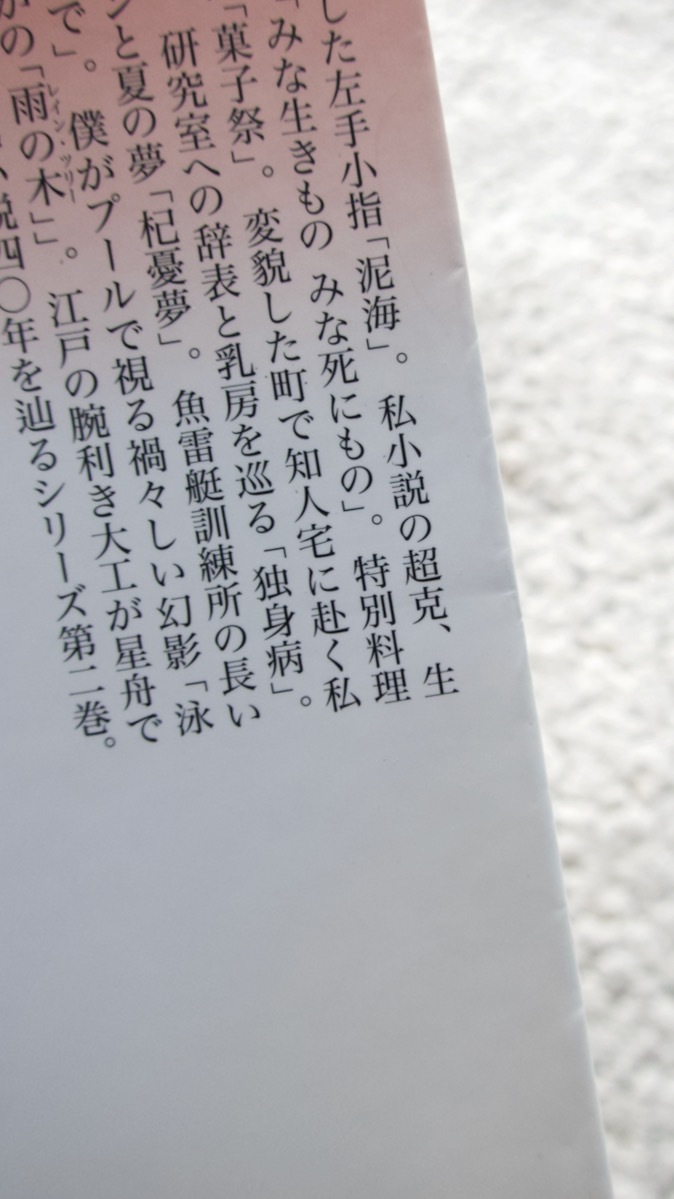 した左手小指「泥海」。私小説の超克、生
「みな生きもの みな死にもの」。特別料理
「菓子祭」。変貌した町で知人宅に赴く私
研究室への辞表と乳房を巡る「独身病」。
ンと夏の夢「杞憂夢」。魚雷艇訓練所の長い
で」。僕がプールで視る禍々しい幻影「泳
の「雨の木」」。江戸の腕利き大工が星舟で
レイン・ツリー
説四〇年を辿るシリーズ第二巻。